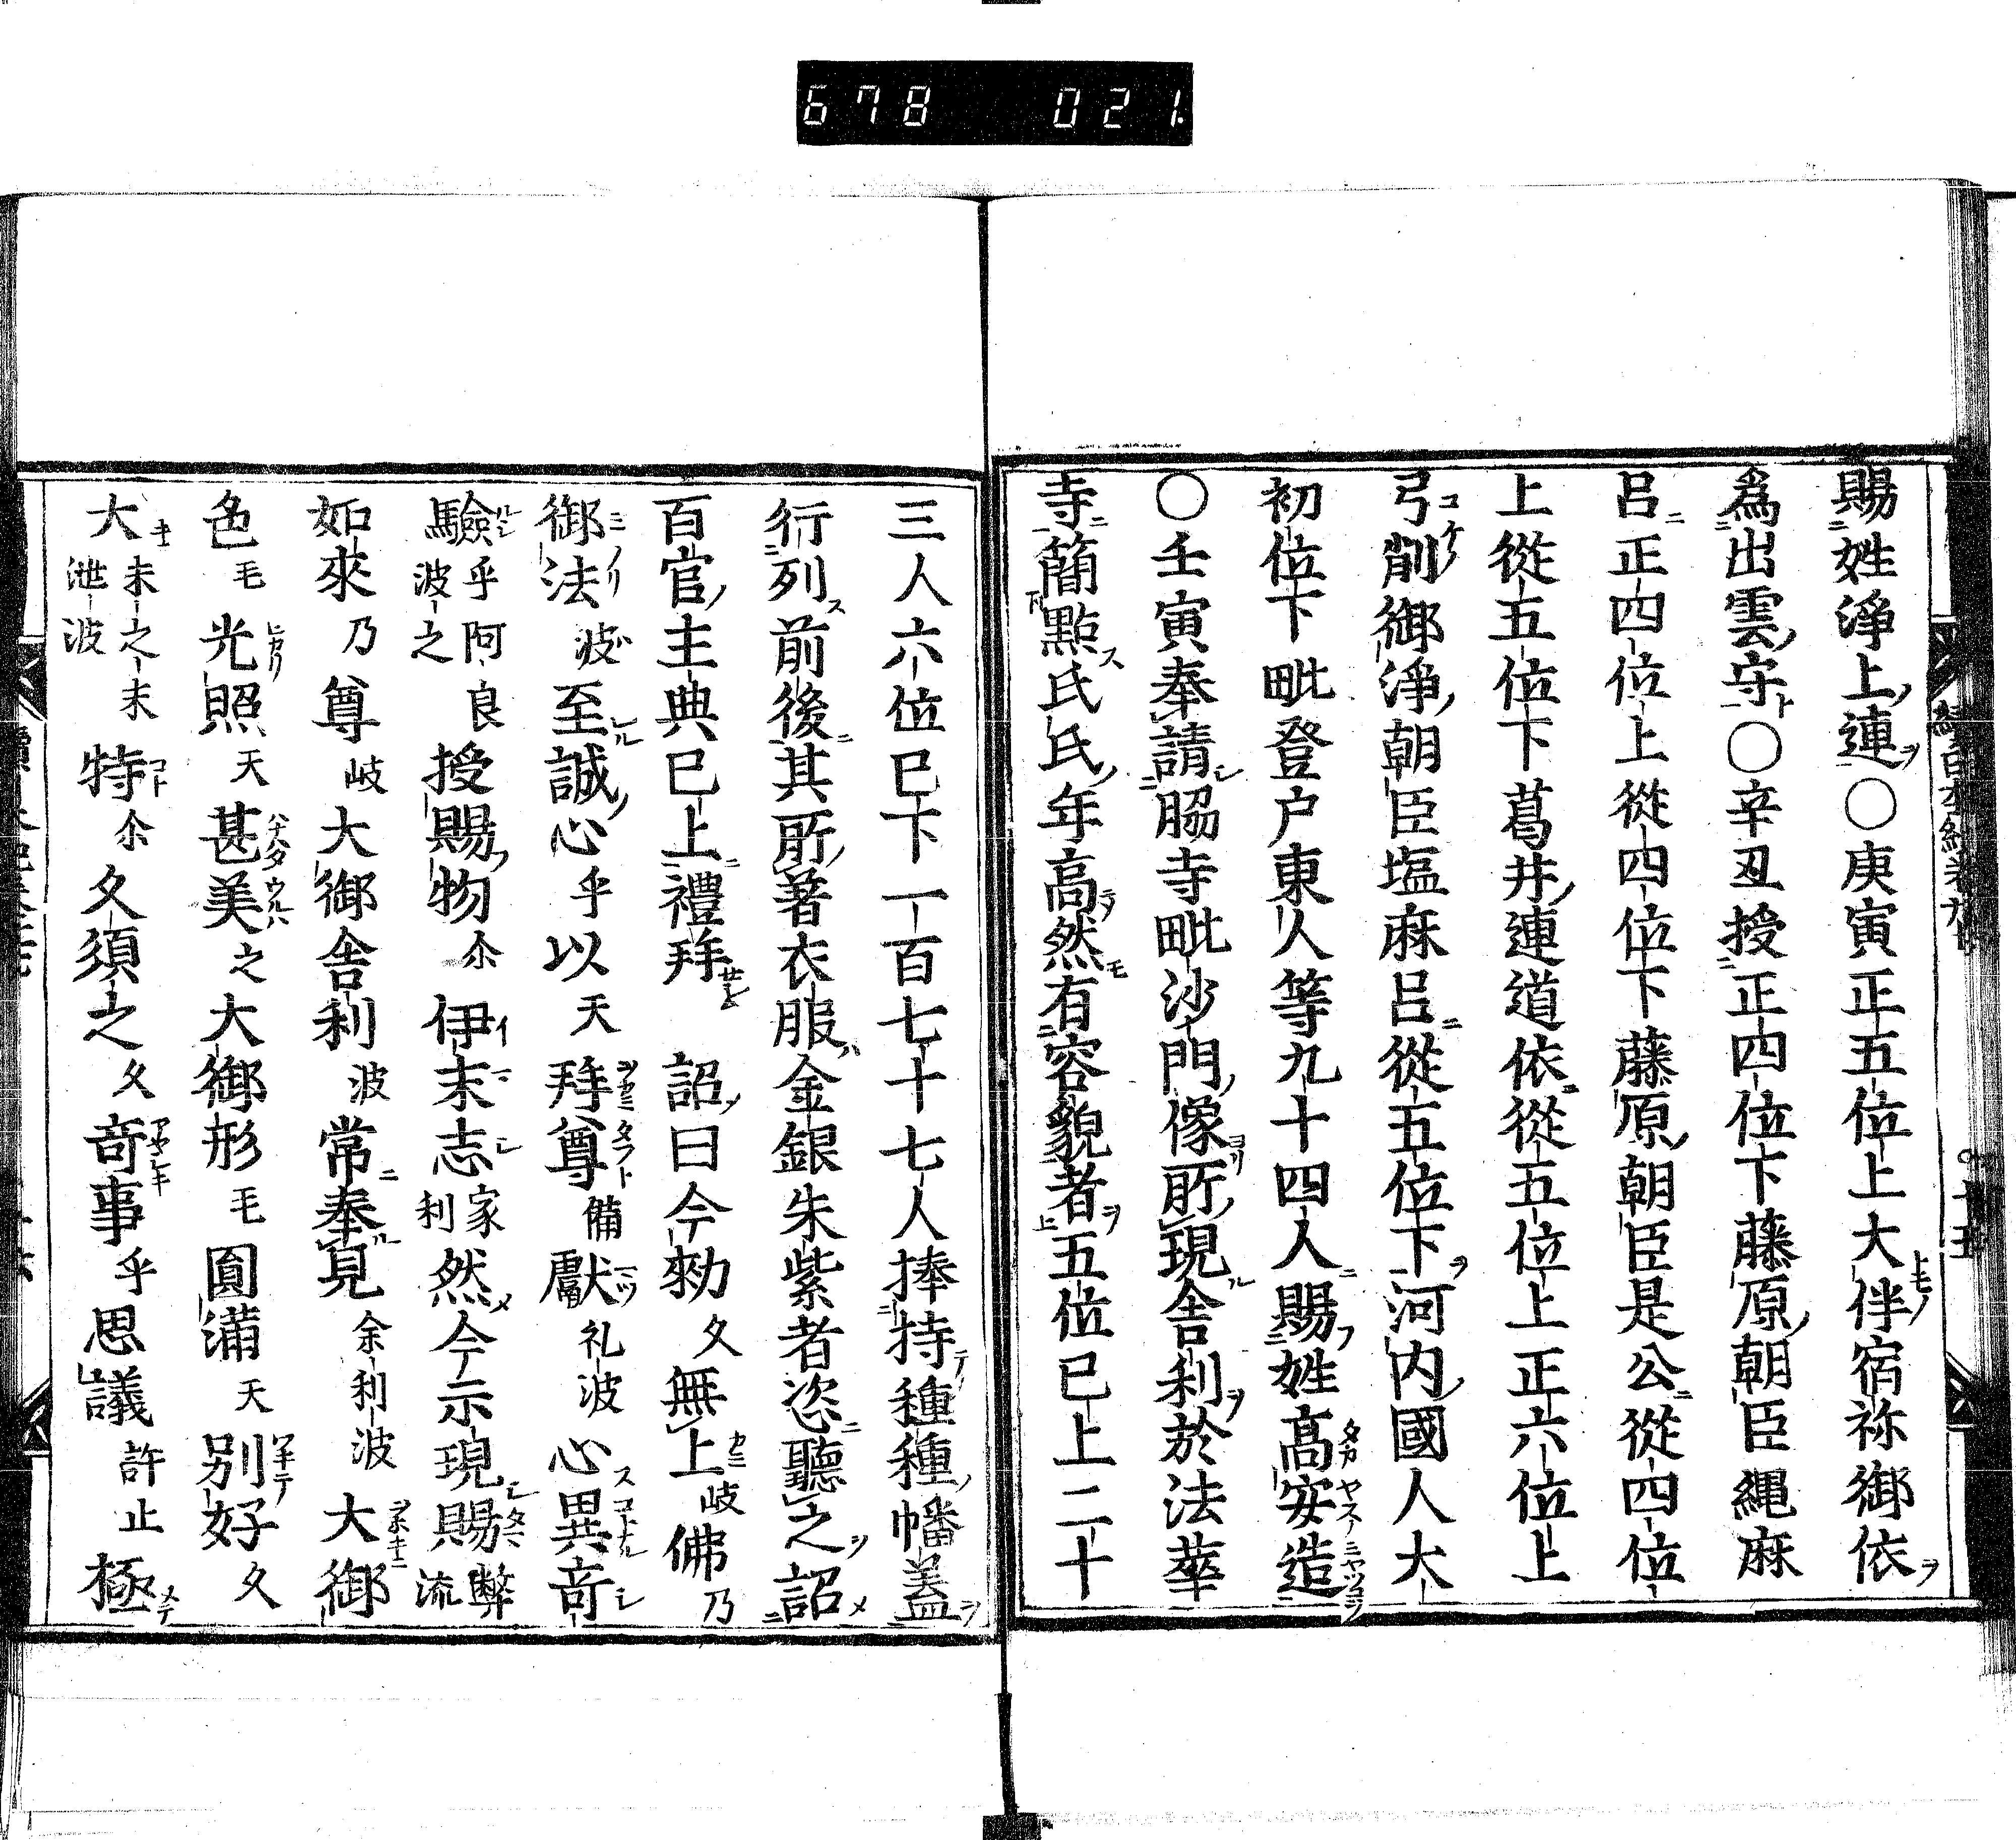 678 021.
賜姓淨上連○庚寅正五位上大伴宿祢御依
爲出雲守○辛丑授正四位下藤原朝臣繩麻
呂正四位上從四位下藤原朝臣是公從四位
上從五位下葛井連道依從五位上正六位上
弓削御淨朝臣塩麻呂從五位下河内國人大
初位下毗登戸東人等九十四人賜姓髙安造
○壬寅奉請脇寺毗沙門像所現舎利於法華
寺簡點氏氏年高然有容貌者五位已上二十
三人六位已下一百七十七人捧持種種幡蓋
行列前後其所著衣服金銀朱紫者恣聽之詔
百官主典已上禮拜 詔曰今勑久無上岐佛乃
御法波至誠心乎以天拜尊備獻礼波心異竒
驗乎阿良波之授賜物尒伊末志家利然今示現賜弊流
如來乃尊岐大御舎利波常奉見余利波大御
色毛光照天甚美之大御形毛圓滿天別好久
大末之末泄波特尒久須之久竒事乎思議許止極